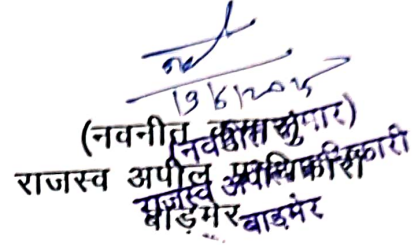 19/6/2025
(नवनीत कुमार)
राजस्व अपील प्राधिकारी
बाड़मेर
(नवनीत कुमार)
राजस्व अपील प्राधिकारी
बाड़मेर